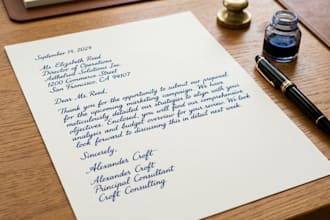 September 14, 2024
Ms. Elizabeth Reed
Director of Operations
Solutions Inc.
1200 Commerce Street
San Francisco, CA 94107
Dear Ms. Reed,
Thank you for the opportunity to submit our proposal
for the upcoming marketing campaign. We have
meticulously detailed our strategies to align with your
objectives. Enclosed, you will find our comprehensive
analysis and budget overview for your review. We look
look forward to discussing this in detail next week.
Sincerely,
Alexander Croft
Alexander Croft
Principal Consultant
Croft Consulting